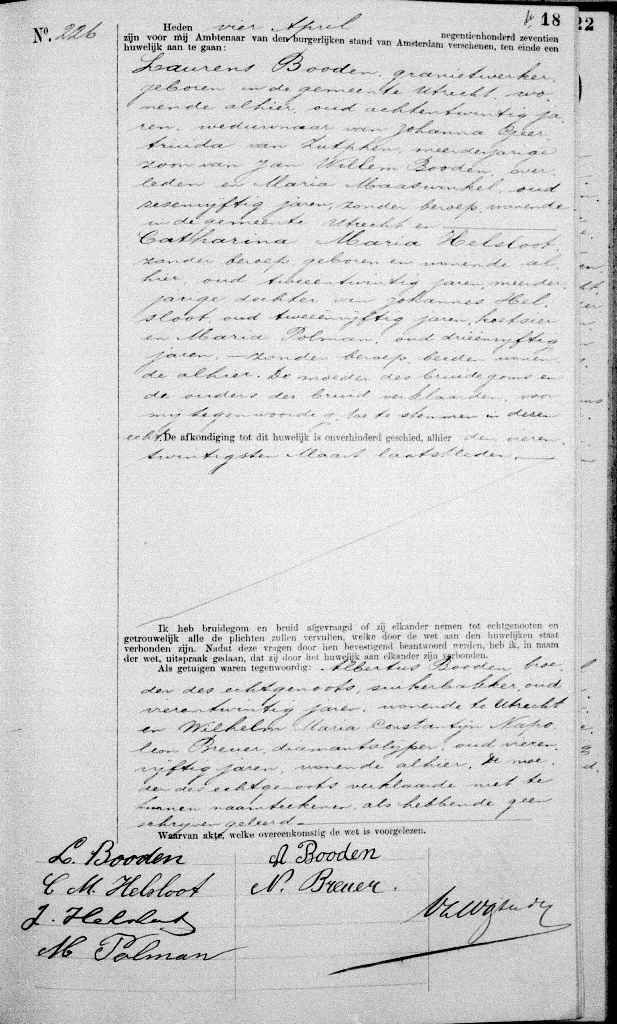 18
22
Nº. 226
Heden vier April negentienhonderd zeventien
zijn voor mij Ambtenaar van den burgerlijken stand van Amsterdam verschenen, ten einde een
huwelijk aan te gaan:
Laurens Booden, granietwerker,
geboren in de gemeente Utrecht, wo-
nende alhier, oud achtentwintig ja-
ren, weduwnaar van Johanna Geer-
truida van Zutphen, meerderjarige
zoon van Jan Willem Booden, over-
leden en Maria Maaswinkel, oud
zesenvijftig jaren, zonder beroep, wonende
in de gemeente Utrecht en
Catharina Maria Helsloot,
zonder beroep, geboren en wonende al-
hier, oud tweeentwintig jaren, meerder-
jarige dochter van Johannes Hel-
sloot, oud tweeenvijftig jaren, koetsier
en Maria Polman, oud drieenvijftig
jaren, — zonder beroep, beiden wonen-
de alhier. De moeder des bruidegoms en
de ouders der bruid verklaarden, voor
mij tegenwoordig, toe te stemmen in deren
echt. De afkondiging tot dit huwelijk is onverhinderd geschied, alhier den vieren-
twintigsten Maart laatstleden.
Ik heb bruidegom en bruid afgevraagd of zij elkander nemen tot echtgenooten en
getrouwelijk alle de plichten zullen vervullen, welke door de wet aan den huwelijken staat
verbonden zijn. Nadat deze vragen door hen bevestigend beantwoord werden, heb ik, in naam
der wet, uitspraak gedaan, dat zij door het huwelijk aan elkander zijn verbonden.
Als getuigen waren tegenwoordig: Albertus Booden broe-
der des echtgenoots, suikerbakker, oud
vierentwintig jaren, wonende te Utrecht
en Wilhelm Maria Constantijn Napo-
leon Breuer, diamantslijper, oud vieren-
vijftig jaren, wonende alhier. De moe-
der des echtgenoots verklaarde niet te
kunnen naamteekenen, als hebbende geen
schrijven geleerd.
Waarvan akte, welke overeenkomstig de wet is voorgelezen.
L. Booden
A Booden
C M. Helsloot
N. Breuer.
J. Helsloot
M Polman